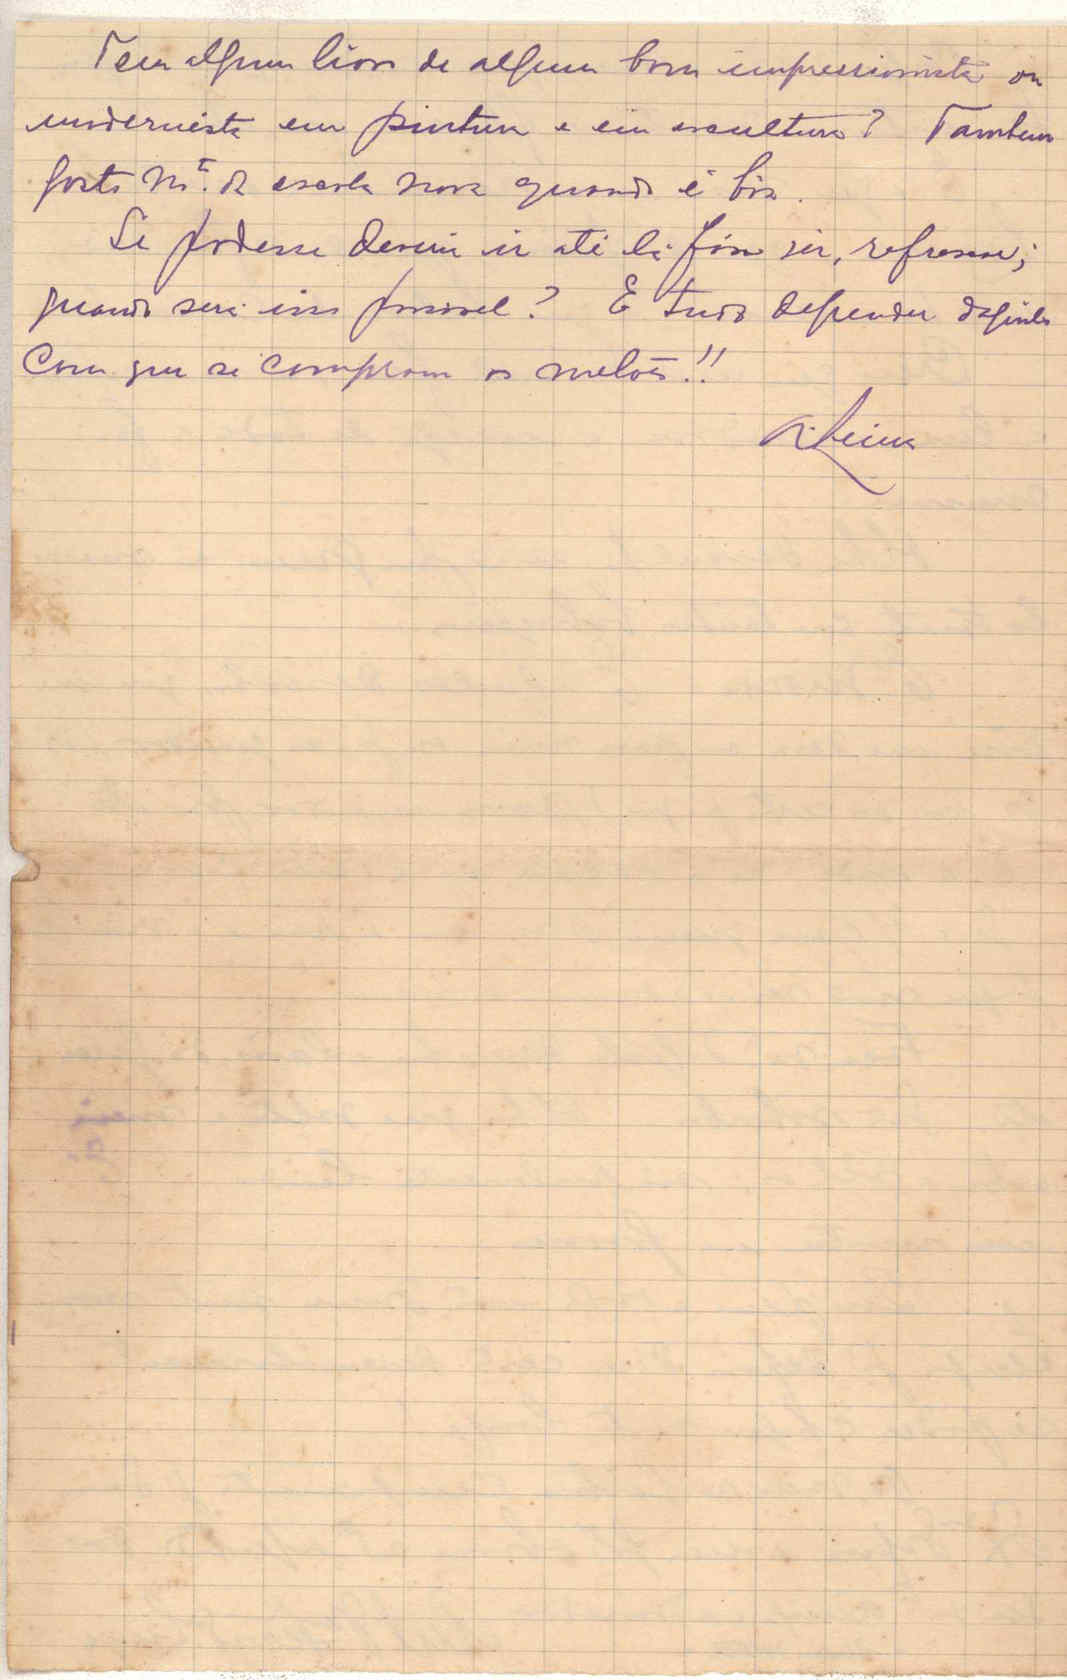 Tem algum livro de algum bom impressionista ou
modernista em pintura e em escultura? Tambem
gosto mt. da escola nova quando é boa.
Se podesse deveria ir até lá fóra ver, refrescar;
quando será isso possivel? E tudo depender daquilo
com que se compram os melões!!